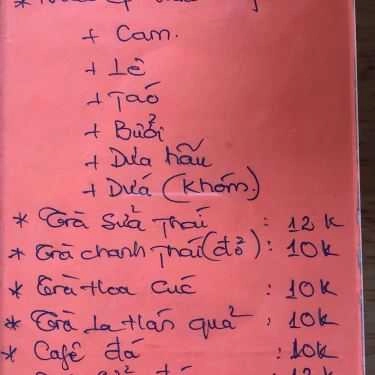 + Cam.
+ Lê
+ Táo
+ Bưởi
+ Dưa hấu
+ Dứa (khóm)
* Trà sửa Thái : 12k
* Trà chanh Thái (đỏ) : 10k
* Trà Hoa Cúc : 10k
* Trà La Hán quả : 10k
* Café đá : 10k